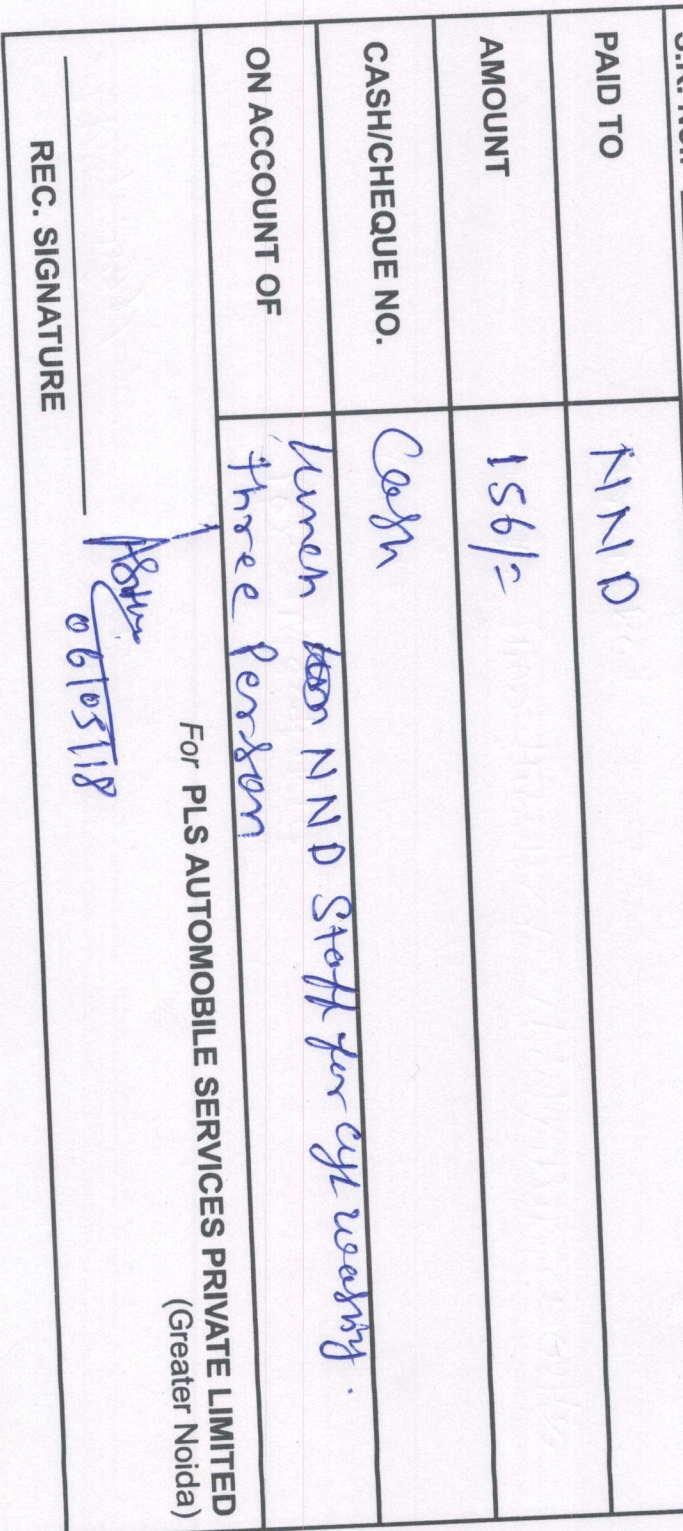 PAID TO NND
AMOUNT 156/=
CASH/CHEQUE NO. Cash
ON ACCOUNT OF Lunch NND Staff for cyl washing.
three Person
For PLS AUTOMOBILE SERVICES PRIVATE LIMITED
(Greater Noida)
06/05/18
REC. SIGNATURE